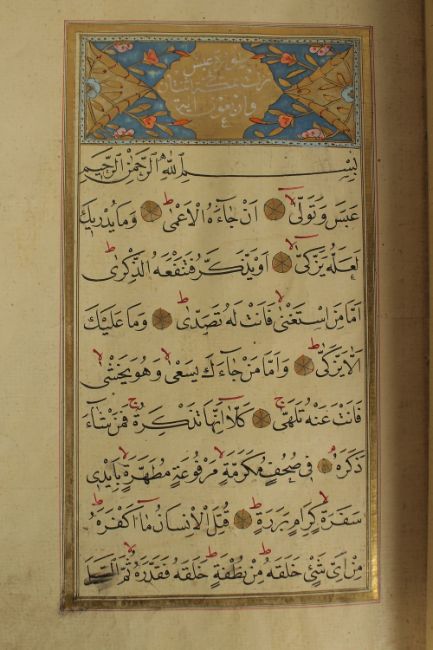 سورة عبس
نزلت بمكة اثنتان
وأربعون اية
بِسْمِ اللهِ الرَّحْمٰنِ الرَّحِيمِ
عَبَسَ وَتَوَلّٰى اَنْ جَاءَهُ الْاَعْمٰى وَمَا يُدْرِيكَ
لَعَلَّهُ يَزَّكّٰى اَوْ يَذَّكَّرُ فَتَنْفَعَهُ الذِّكْرٰى
اَمَّا مَنِ اسْتَغْنٰى فَاَنْتَ لَهُ تَصَدّٰى وَمَا عَلَيْكَ
اَلَّا يَزَّكّٰى وَاَمَّا مَنْ جَاءَكَ يَسْعٰى وَهُوَ يَخْشٰى
فَاَنْتَ عَنْهُ تَلَهّٰى كَلَّا اِنَّهَا تَذْكِرَةٌ فَمَنْ شَاءَ
ذَكَرَهُ فِي صُحُفٍ مُكَرَّمَةٍ مَرْفُوعَةٍ مُطَهَّرَةٍ بِاَيْدِي
سَفَرَةٍ كِرَامٍ بَرَرَةٍ قُتِلَ الْاِنْسَانُ مَا اَكْفَرَهُ
مِنْ اَيِّ شَيْءٍ خَلَقَهُ مِنْ نُطْفَةٍ خَلَقَهُ فَقَدَّرَهُ ثُمَّ السَّبِيلَ